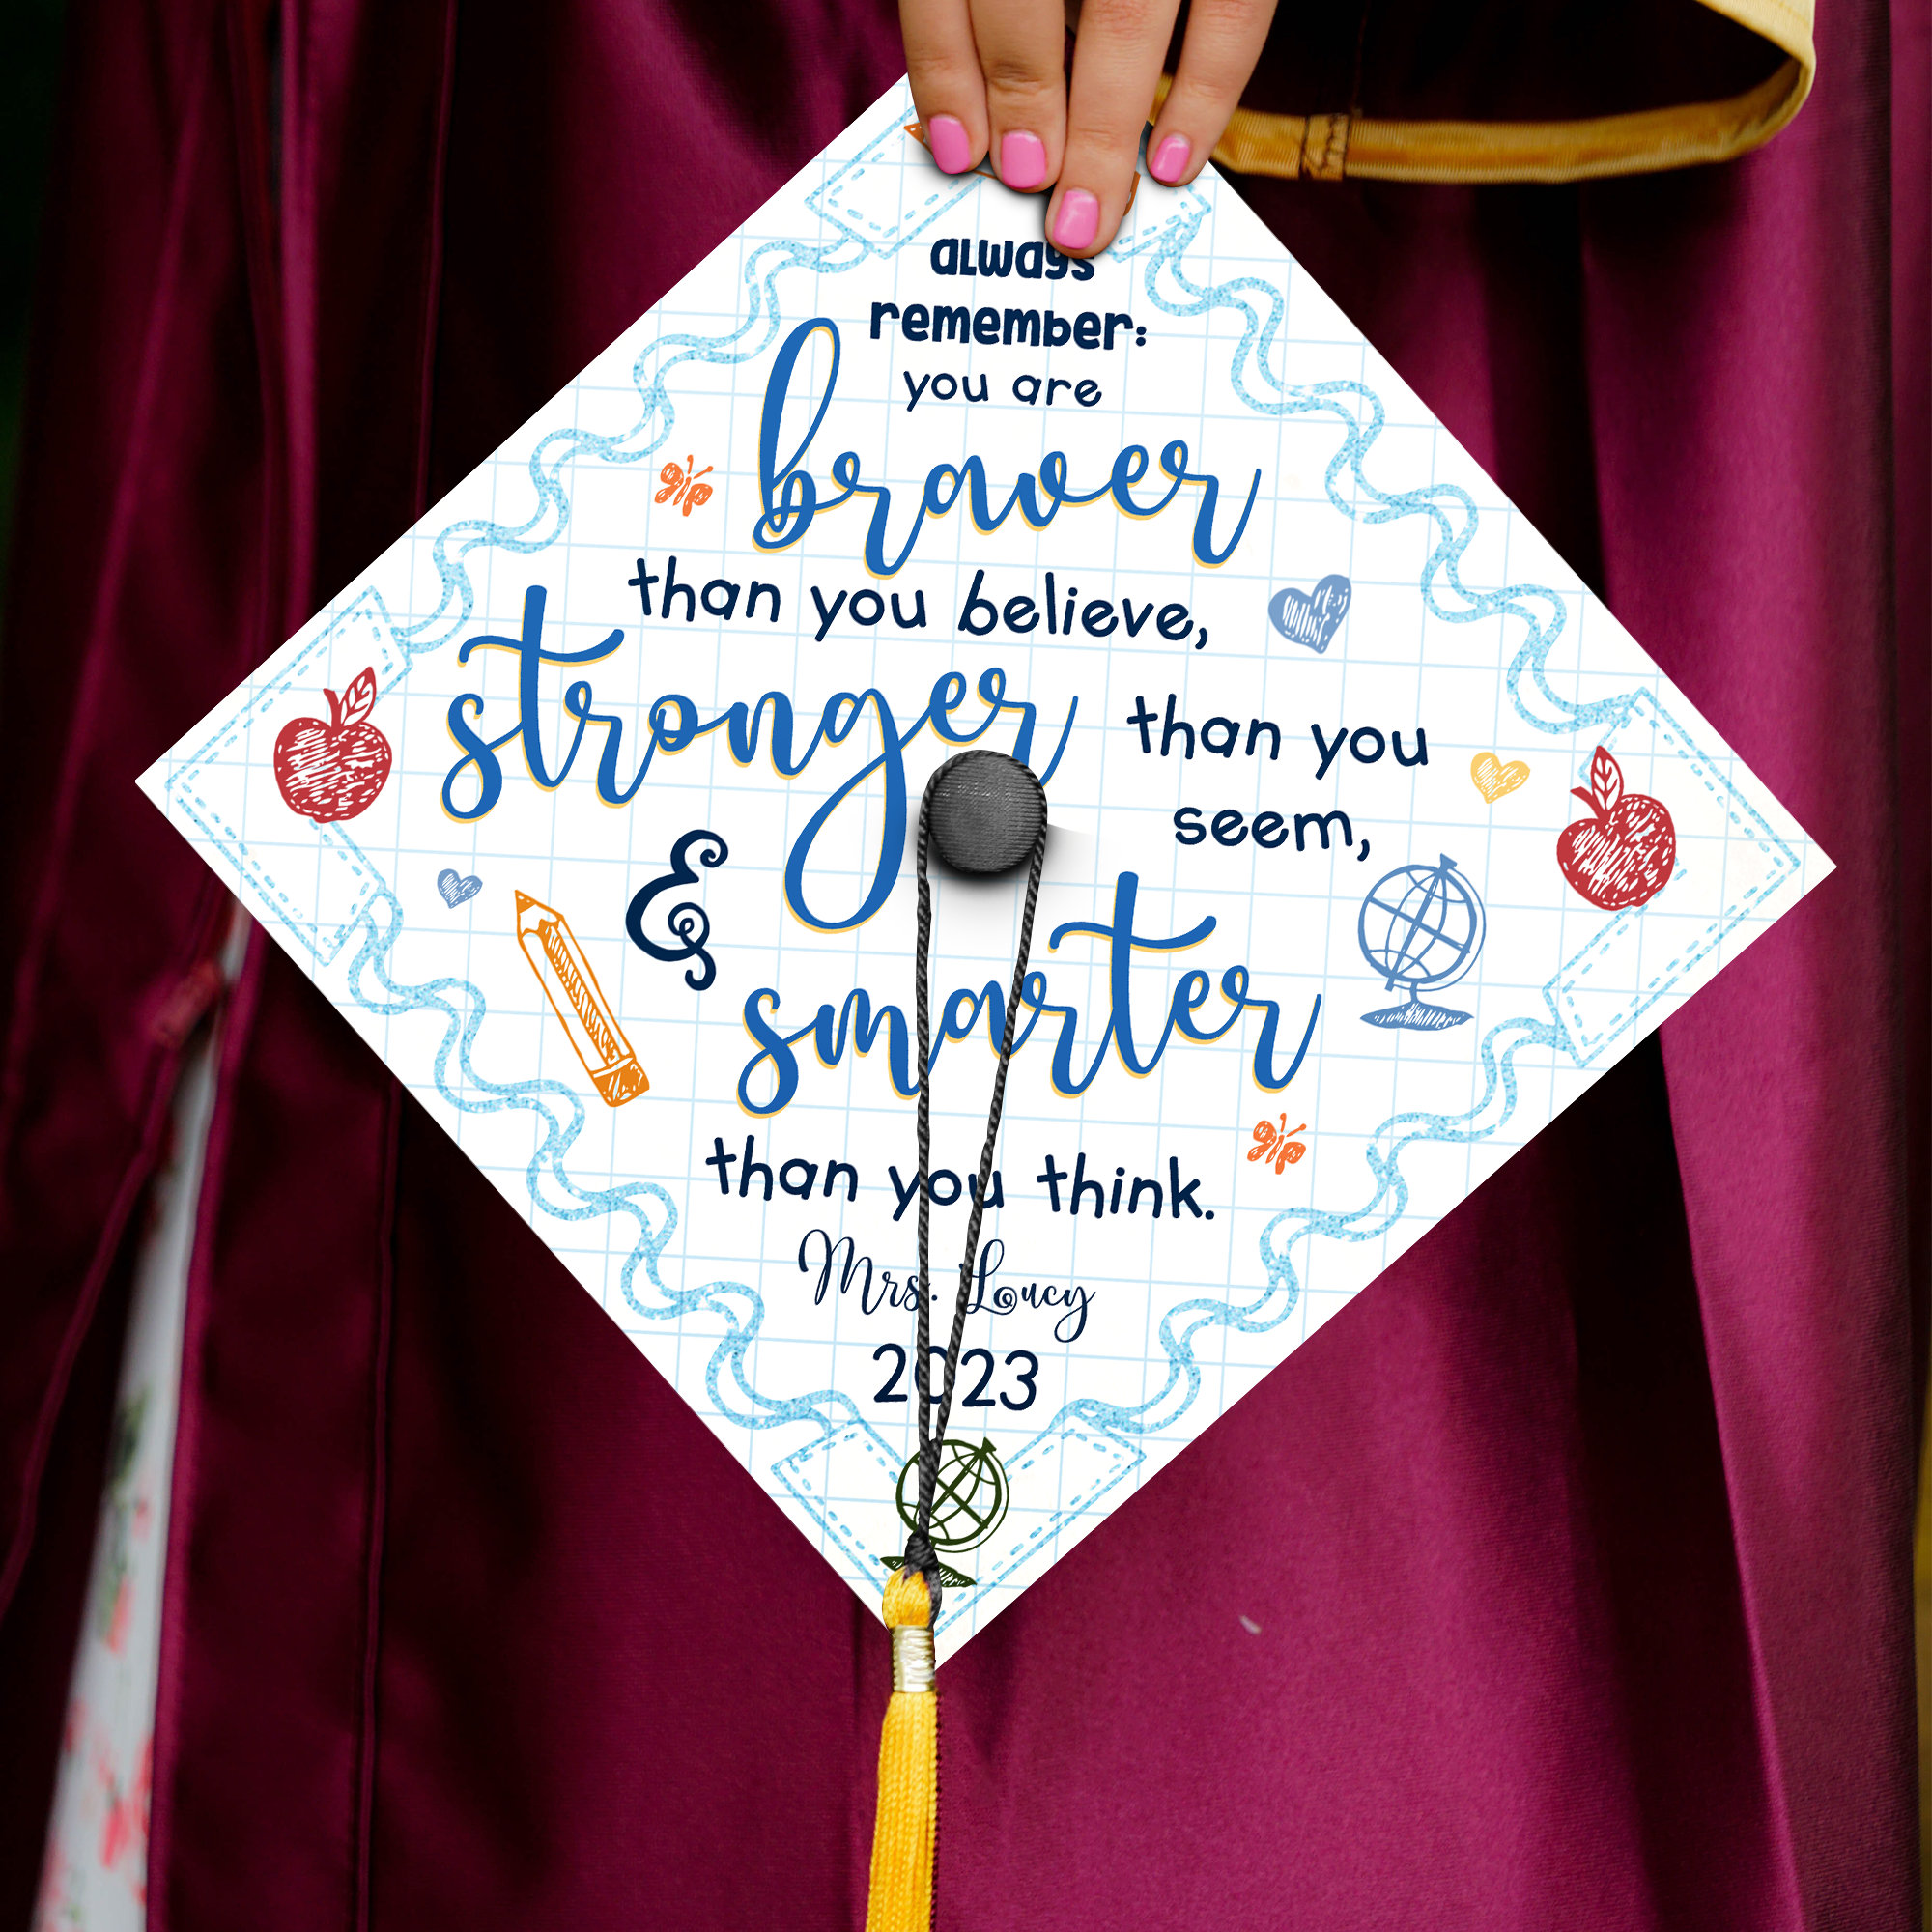 always
remember:
you are
braver
than you believe,
stronger than you
seem,
& smarter
than you think.
Mrs. Loucy
2023